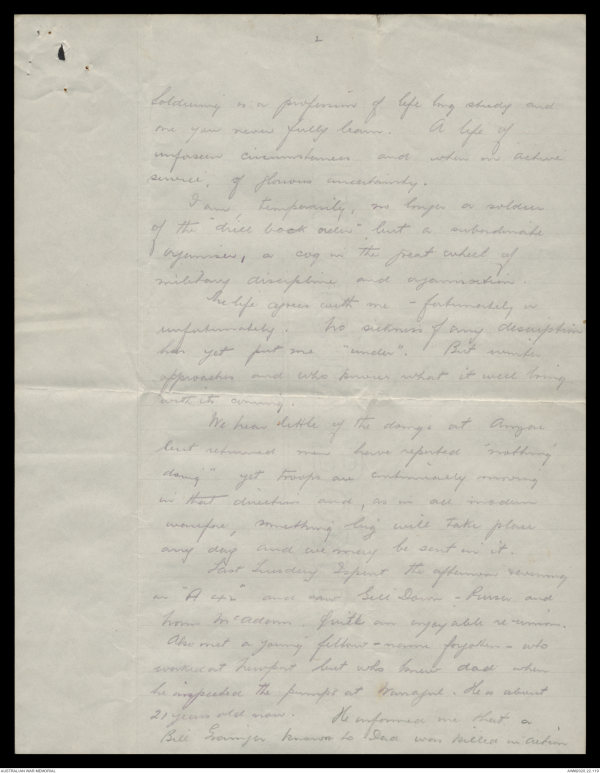 2
Soldiering is a profession of life long study and
one you never fully learn. A life of
unforseen circumstances and when on active
service, of glorious uncertainty.
I am, temporarily, no longer a soldier
of the "drill book order" but a subordinate
organiser, a cog in the great wheel of
military discipline and organisation.
The life agrees with me - fortunately or
unfortunately. No sickness of any description
has yet put me "under". But winter
approaches and who knows what it will bring
with its coming.
We hear little of the doings at Anzac
but returned men have reported "nothing
doing" yet troops are continuously moving
in that direction and, as in all modern
warfare, something big will take place
any day and we may be sent in it.
Last Tuesday I spent the afternoon & evening
on "A 42" and saw Dorn - Purser and
from McAdam. Quite an enjoyable re-union.
Also met a young fellow - name forgotten - who
worked at Newport but who knew dad when
he inspected the pumps at Warragul. He is about
21 years old now. He informed me that a
Bill Grainger known to Dad was killed in action
AUSTRALIAN WAR MEMORIAL